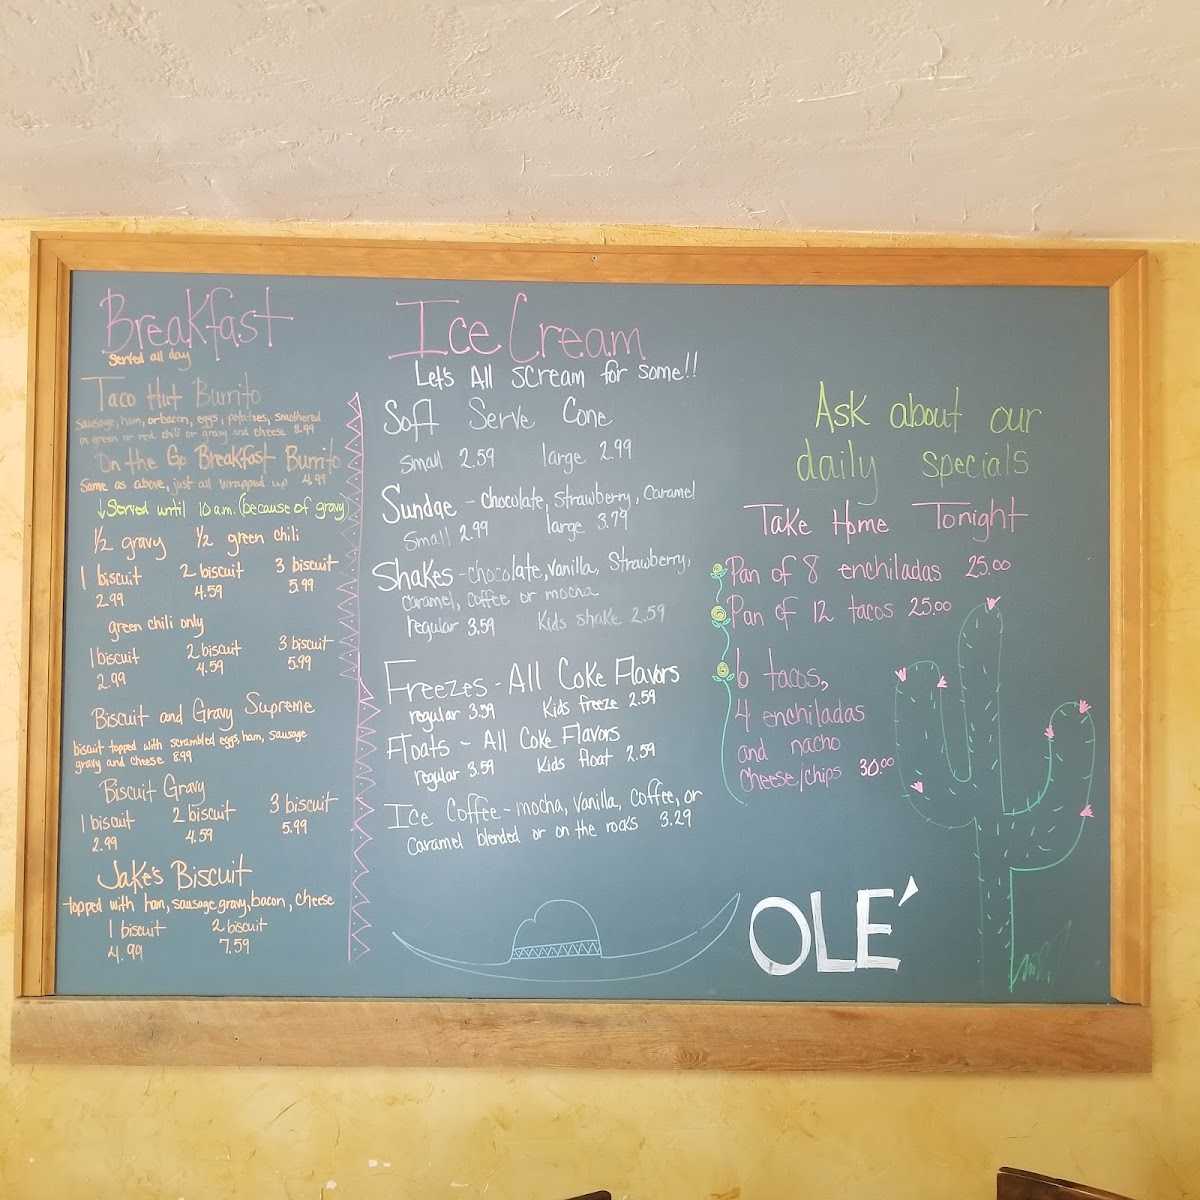 Breakfast
served all day
Taco Hut Burrito
sausage, ham, or bacon, eggs, potatoes, smothered
in green or red chili or gravy and cheese 8.99
On the Go Breakfast Burrito
Same as above, just all wrapped up 4.99
↓Served until 10 a.m. (because of gravy)
1/2 gravy 1/2 green chili
1 biscuit 2 biscuit 3 biscuit
2.99 4.59 5.99
green chili only
1 biscuit 2 biscuit 3 biscuit
2.99 4.59 5.99
Biscuit and Gravy Supreme
biscuit topped with scrambled eggs, ham, sausage
gravy and cheese 8.99
Biscuit Gravy
1 biscuit 2 biscuit 3 biscuit
2.99 4.59 5.99
Jake's Biscuit
topped with ham, sausage gravy, bacon, cheese
1 biscuit 2 biscuit
4.99 7.59
Ice Cream
Let's All scream for some!!
Soft Serve Cone
small 2.59 large 2.99
Sundae - chocolate, strawberry, caramel
Small 2.99 large 3.79
Shakes - chocolate, vanilla, strawberry,
caramel, coffee or mocha
regular 3.59 Kids shake 2.59
Freezes - All Coke Flavors
regular 3.59 Kids freeze 2.59
Floats - All Coke Flavors
regular 3.59 Kids float 2.59
Ice Coffee - mocha, vanilla, coffee, or
Caramel blended or on the rocks 3.29
Ask about our
daily specials
Take Home Tonight
Pan of 8 enchiladas 25.00
Pan of 12 tacos 25.00
6 tacos,
4 enchiladas
and nacho
cheese/chips 30.00
OLE'